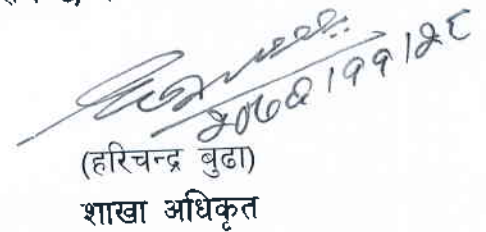 २०७६।११।२८
(हरिचन्द्र बुढा)
शाखा अधिकृत